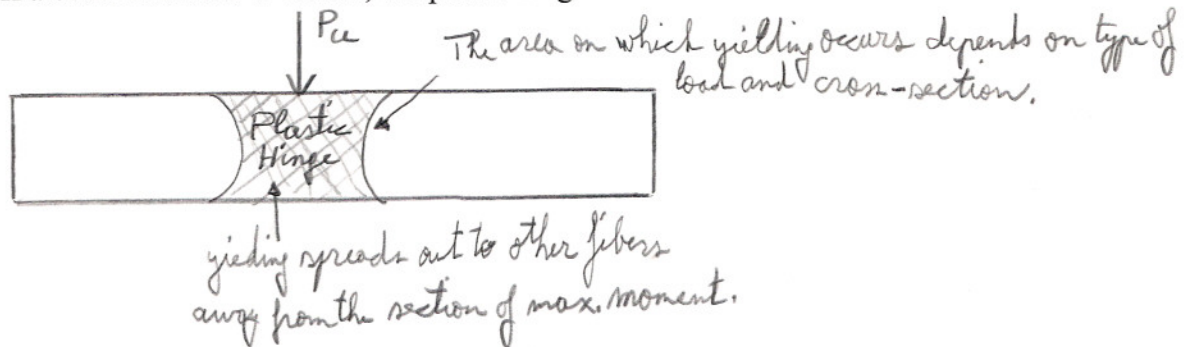 Pu
The area on which yielding occurs depends on type of
load and cross-section.
Plastic
Hinge
yieding spreads out to other fibers
away from the section of max. moment.